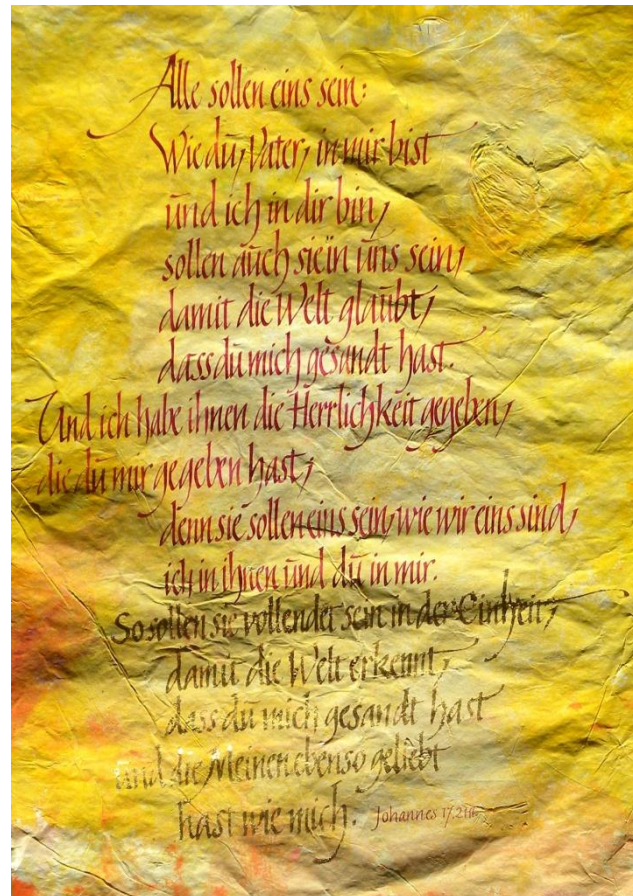 Alle sollen eins sein:
Wie du, Vater, in mir bist
und ich in dir bin,
sollen auch sie in uns sein,
damit die Welt glaubt,
dass du mich gesandt hast.
Und ich habe ihnen die Herrlichkeit gegeben,
die du mir gegeben hast,
denn sie sollen eins sein, wie wir eins sind,
ich in ihnen und du in mir.
So sollen sie vollendet sein in der Einheit,
damit die Welt erkennt,
dass du mich gesandt hast
und die Meinen ebenso geliebt
hast wie mich. Johannes